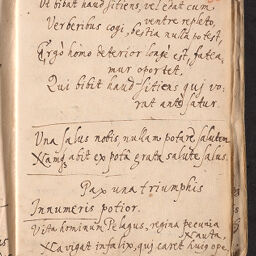 Ut bibat haud sitiens, vel edat cum
ventre repleto,
Verberibus cogi bestia nulla potest,
Ergò homo deterior longè est, fatea,
mur oportet,
Qui bibit haud sitiens quj vo,
rat antè satur.
Una salus nobis, nullam potare salutem
abit ex potâ grata salute salus.
Pax una triumphis
Innumeris potior.
Vita hominum Pelagus, regina pecunia
nauta,
Navigat infælix, quj caret hujus ope.